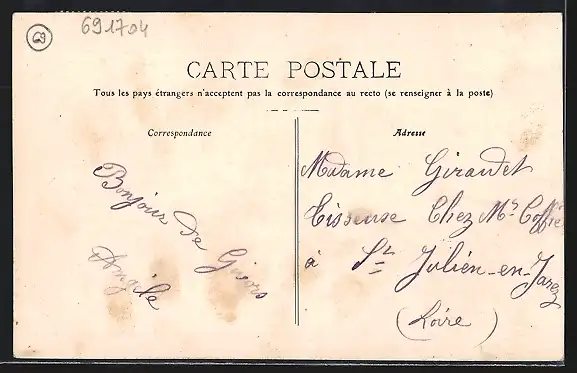 691704
CARTE POSTALE
Tous les pays étrangers n'acceptent pas la correspondance au recto (se renseigner à la poste)
Correspondance
Bonjour de Givors
Adresse
Madame Giraudet
Tisseuse Chez Mr
à St Julien-en-Jarez
(Loire)